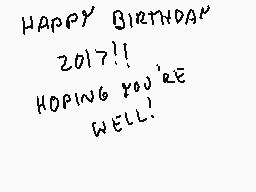 HAPPY BIRTHDAY
2017!!
HOPING YOU'RE
WELL!